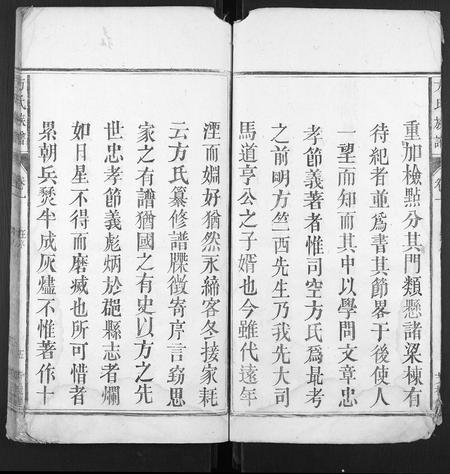 重加檢點分其門類懸諸梁棟有
待紀者並爲書其節畧于後使人
一望而知而其中以學問文章忠
孝節義著者惟司空方氏爲最考
之前明方竺西先生乃我先大司
馬道亨公之子婿也今雖代遠年
湮而婣好猶然永締客冬接家耗
云方氏纂修譜牒徵寄序言竊思
家之有譜猶國之有史以方之先
世忠孝節義彪炳於郡縣志者爛
如日星不得而磨滅也所可惜者
累朝兵燹半成灰燼不惟著作十
方氏族譜
卷一
方氏族譜
卷一